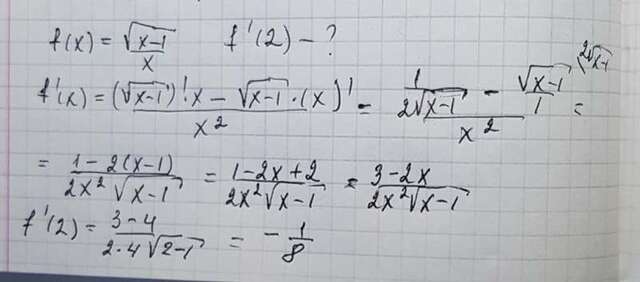 f(x) = √(x-1)/x    f'(2) - ?
f'(x) = ((√(x-1))'·x - √(x-1)·(x)')/x² = (1/(2√(x-1)) - √(x-1)/1 (2√(x-1))/x² =
= (1-2(x-1))/(2x²√(x-1)) = (1-2x+2)/(2x²√(x-1)) = (3-2x)/(2x²√(x-1))
f'(2) = (3-4)/(2·4√(2-1)) = -1/8